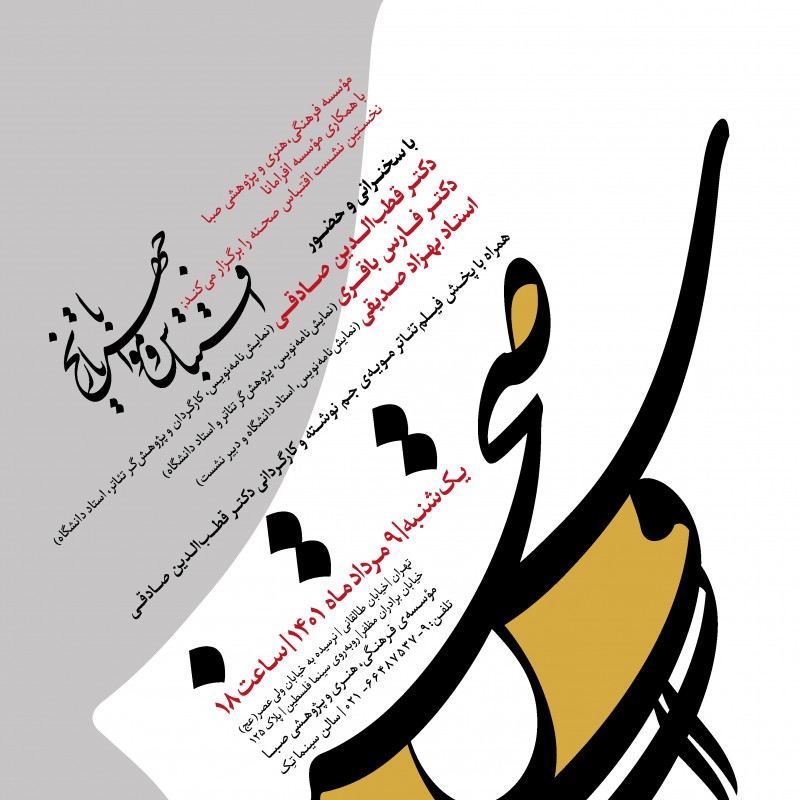 مؤسسه فرهنگی، هنری و پژوهشی صبا
با همکاری مؤسسه افرامانا
نخستین نشست اقتباس صحنه را برگزار می‌کند:
اقتباس و
مواجهه با تاریخ
با سخنرانی و حضور
دکتر قطب‌الدین صادقی (نمایش‌نامه‌نویس، کارگردان و پژوهش‌گر تئاتر، استاد دانشگاه)
دکتر فارس باقری (نمایش‌نامه‌نویس، پژوهش‌گر تئاتر و استاد دانشگاه)
استاد بهزاد صدیقی (نمایش‌نامه‌نویس، استاد دانشگاه و دبیر نشست)
همراه با پخش فیلم تئاتر مویه‌ی جم نوشته و کارگردانی دکتر قطب‌الدین صادقی
یک‌شنبه | ۹ مرداد ماه ۱۴۰۱ | ساعت ۱۸
تهران | خیابان طالقانی | نرسیده به خیابان ولی عصر (عج)
خیابان برادران مظفر | روبه‌روی سینما فلسطین | پلاک ۱۲۵
مؤسسه‌ی فرهنگی، هنری و پژوهشی صبا
تلفن: ۹-۶۶۴۸۷۵۳۷-۰۲۱ | سالن سینما تک